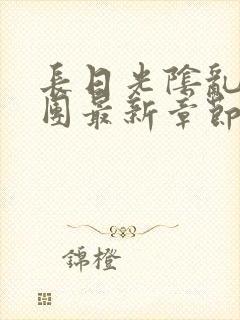 長日光陰亂
團最新章節
錦橙